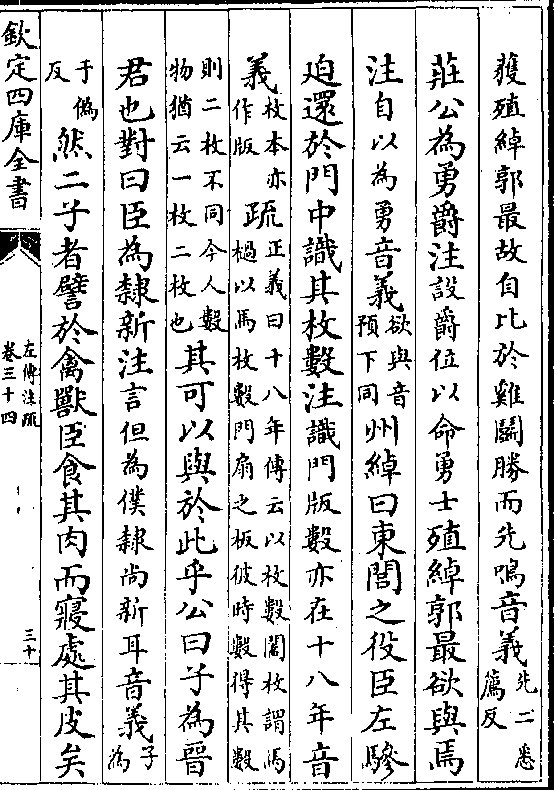 獲殖綽郭最故自比於雞鬭勝而先鳴音義先二悉薦反
莊公為勇爵注設爵位以命勇士殖綽郭最欲與焉
注自以為勇音義欲與音預下同州綽曰東閭之役臣左驂
迫還於門中識其枚數注識門版數亦在十八年音
義枚本亦作版疏正義曰十八年傳云以枚數闔枚謂馬檛以馬枚數門扇之板彼時數得其數
則二枚不同今人數物猶云一枚二枚也其可以與於此乎公曰子為晉
君也對曰臣為隸新注言但為僕隸尚新耳音義子為
于偽反然二子者譬於禽獸臣食其肉而寢處其皮矣
欽定四庫全書
左傳注疏
卷三十四
三十